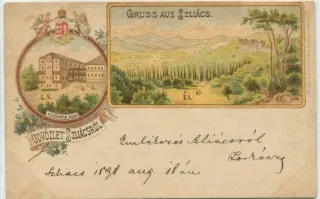 GRUSS AUS SZLIÁCS.
ÜDVÖZLET SZLIÁCSRÓL
Emlékezés Szliácsról
Szliács 1898 aug 18án